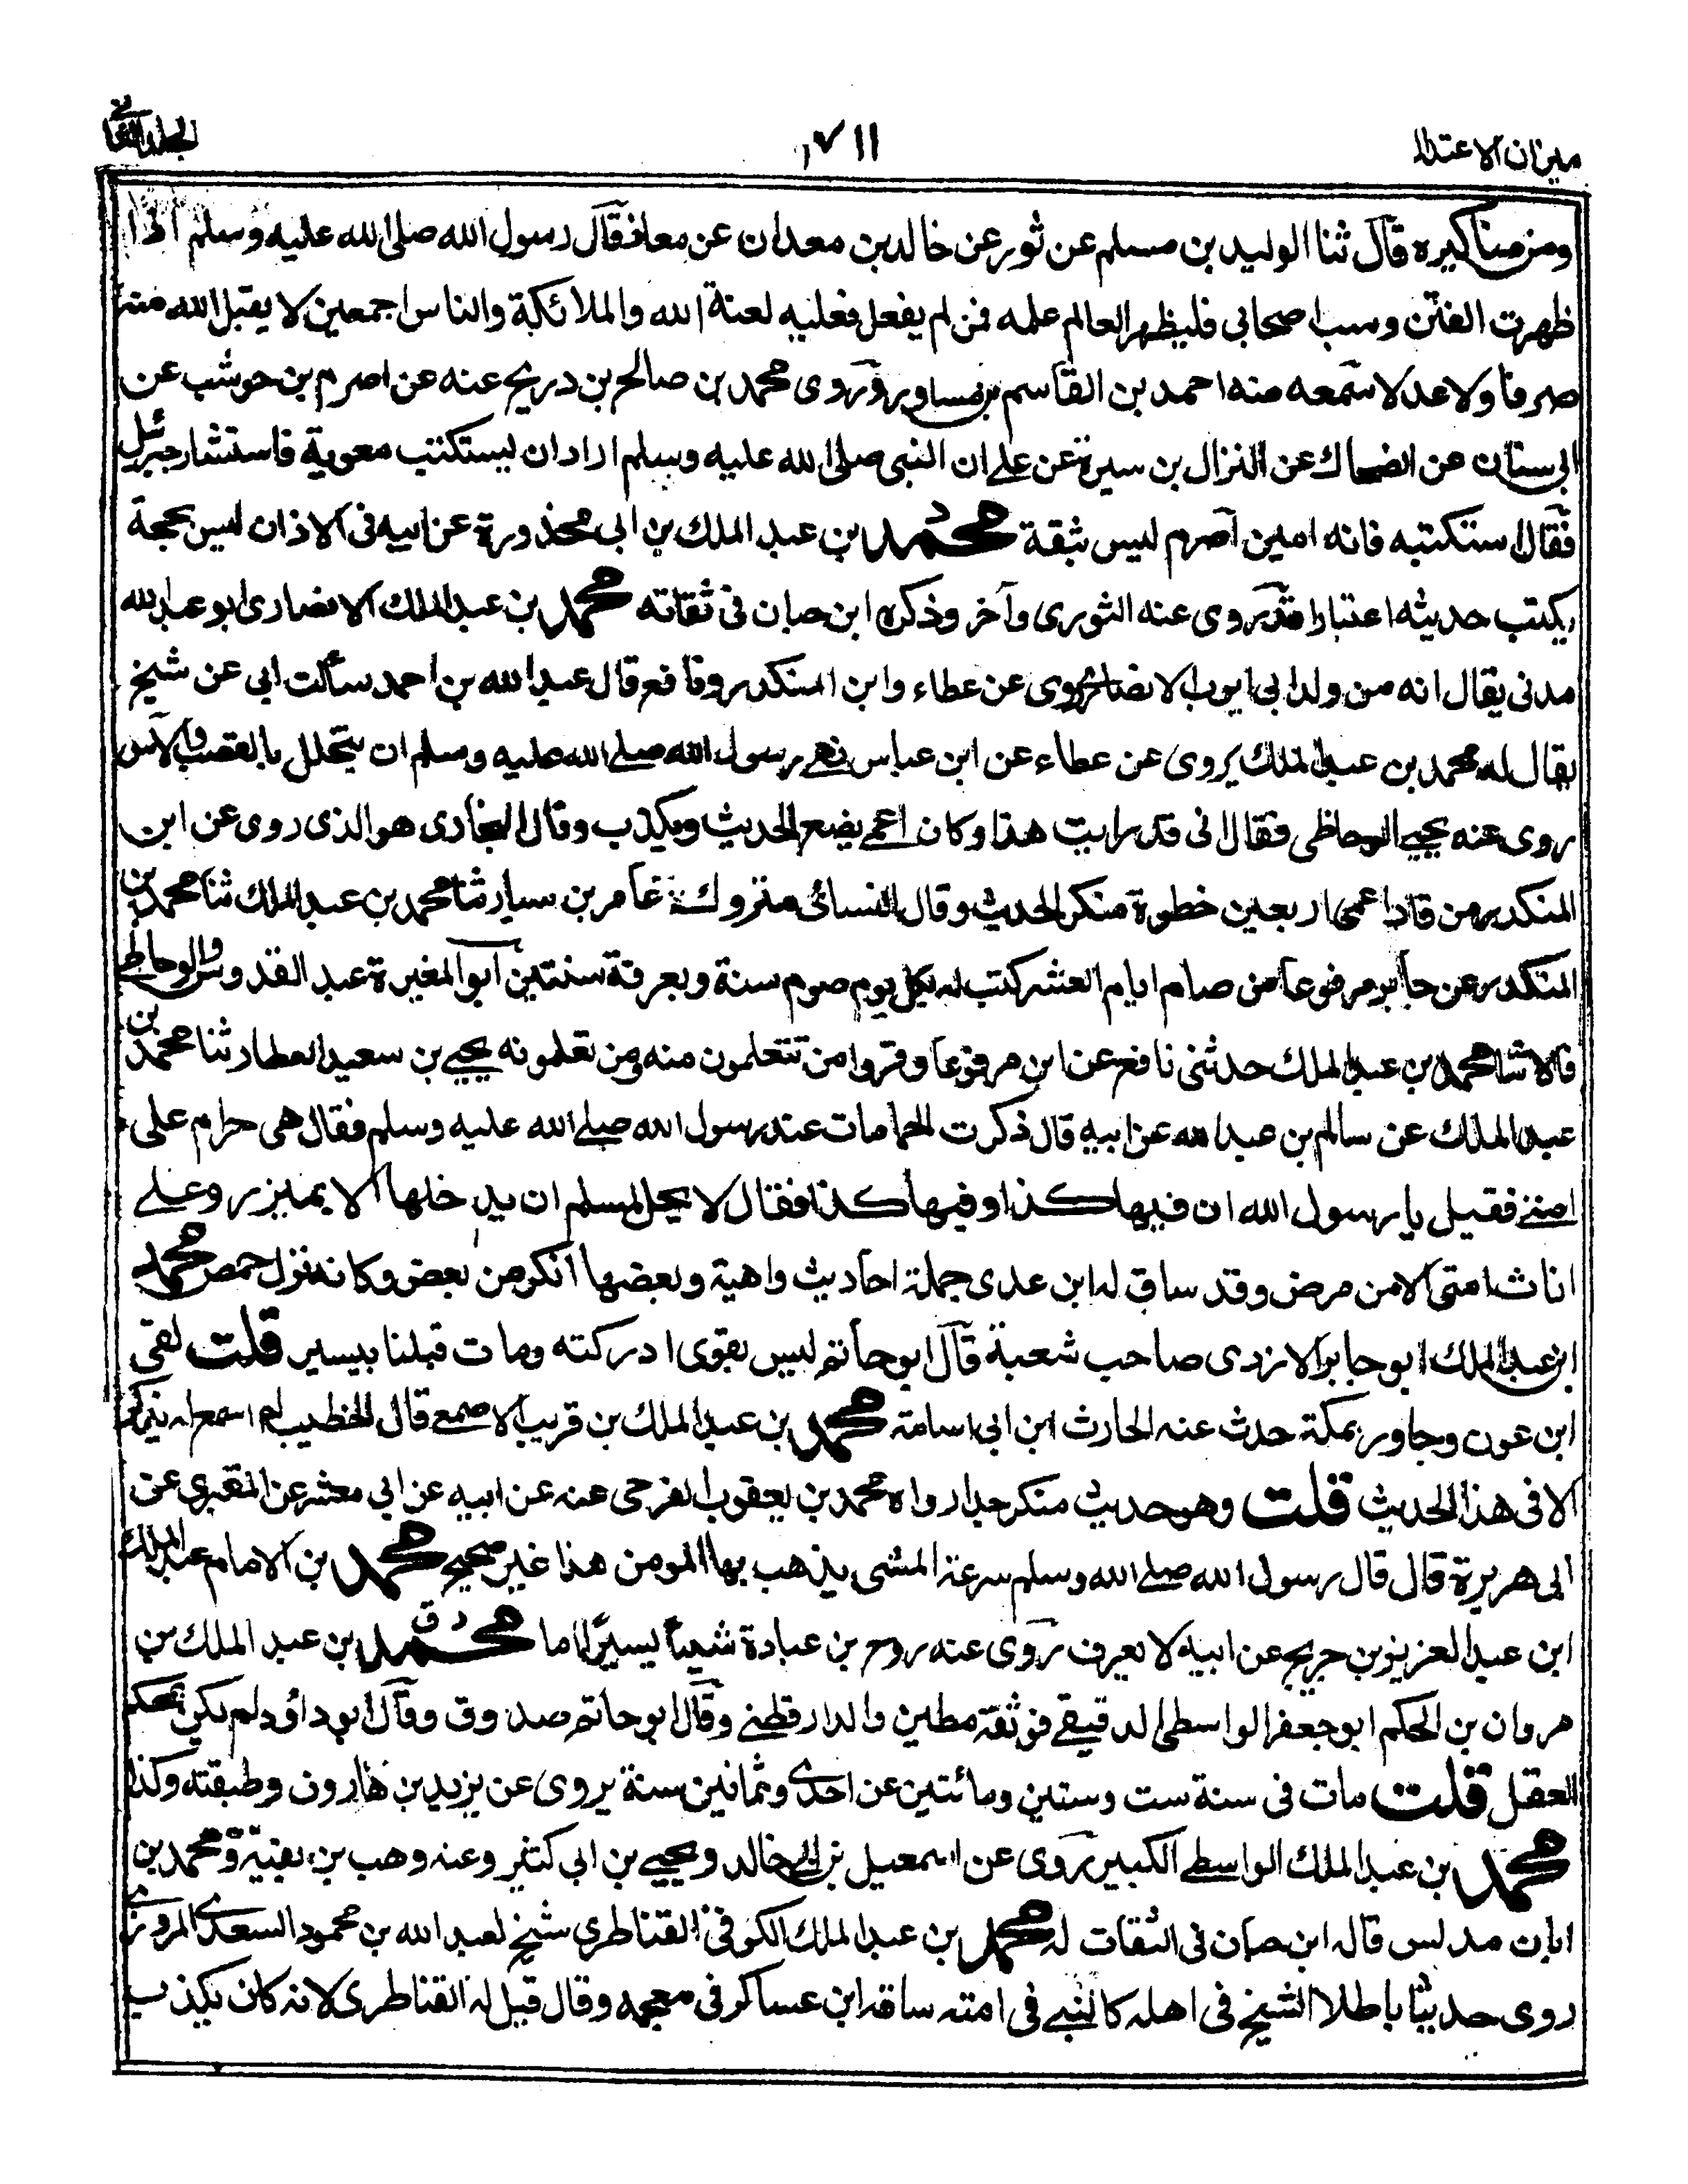 ميزان الاعتدال
٧١١
الجلد الثانى
ومن مناكيره قال ثنا الوليد بن مسلم عن ثور عن خالد بن معدان عن معاذ قال رسول الله صلى الله عليه وسلم اذا
ظهرت الفتن وسب اصحابى فليظهر العالم علمه فمن لم يفعل فعليه لعنة الله والملائكة والناس اجمعين لا يقبل الله منه
صرفا ولا عدلا سمعه منه احمد بن القاسم بن مساور وروى محمد بن صالح بن دريج عنه عن اصرم بن حوشب عن
ابى سنان عن الضحاك عن النزال بن سبرة عن على ان النبى صلى الله عليه وسلم اراد ان يستكتب معوية فاستشار جبرئيل
فقال استكتبه فانه امين آصرم ليس بثقة محمد بن عبد الملك بن ابى محذورة عن ابيه فى الاذان ليس بحجة
يكتب حديثه اعتبارا قد روى عنه الثورى وآخر وذكره ابن حبان فى ثقاته محمد بن عبد الملك الانصارى ابو عبد الله
مدنى يقال انه من ولد ابى ايوب الانصارى روى عن عطاء وابن المنكدر ونافع قال عبد الله بن احمد سألت ابى عن شيخ
يقال له محمد بن عبد الملك يروى عن عطاء عن ابن عباس نهى رسول الله صلى الله عليه وسلم ان يتخلل بالقصب والآس
روى عنه يحيى الوحاظى فقال انى قد رايت هذا وكان اعمى يضع الحديث ويكذب وقال البخارى هو الذى روى عن ابن
المنكدر من قاد اعمى اربعين خطوة منكر الحديث وقال النسائى متروك عامر بن سيار ثنا محمد بن عبد الملك ثنا محمد بن
المنكدر عن جابر مرفوعا من صام ايام العشر كتب له بكل يوم صوم سنة وبعرفة سنتين ابو المغيرة عبد القدوس والوحاظى
قالا ثنا محمد بن عبد الملك حدثنى نافع عن ابن مرفوعا وقروا من تتعلمون منه ومن تعلمونه يحيى بن سعيد العطار ثنا محمد بن
عبد الملك عن سالم بن عبد الله عن ابيه قال ذكرت الحمامات عند رسول الله صلى الله عليه وسلم فقال هى حرام على
امتى فقيل يا رسول الله ان فيها كذا وفيها كذا فقال لا يحل لمسلم ان يدخلها الا بميزر وعلى
اناث امتى الا من مرض وقد ساق له ابن عدى جملة احاديث واهية وبعضها انكر من بعض وكان نزل حمص محمد
ابن عبد الملك ابو جابر الازدى صاحب شعبة قال ابو حاتم ليس بقوى ادركته ومات قبلنا بيسير قلت لقى
ابن عون وجاور بمكة حدث عنه الحارث ابن ابى اسامة محمد بن عبد الملك بن قريب الاصمعى قال الخطيب لم اسمع له بذكر
الا فى هذا الحديث قلت وهو حديث منكر جدا رواه محمد بن يعقوب الفرجى عنه عن ابيه عن ابى معشر عن المقبرى عن
ابى هريرة قال قال رسول الله صلى الله وسلم سرعة المشى يذهب بها المومن هذا غير صحيح محمد بن الامام عبد الملك
ابن عبد العزيز بن جريج عن ابيه لا يعرف روى عنه روح بن عبادة شيئا يسيرا اما محمد د ق بن عبد الملك بن
مروان بن الحكم ابو جعفر الواسطى الدقيقى فوثقه مطين والدارقطنى وقال ابو حاتم صدوق وقال ابو داؤد لم يكن بمحكم
العقل قلت مات فى سنة ست وستين ومائتين عن احدى وثمانين سنة يروى عن يزيد بن هارون وطبقته وكذا
محمد بن عبد الملك الواسطى الكبير روى عن اسمعيل بن ابى خالد ويحيى بن ابى كثير وعنه وهب بن بقية ومحمد بن
ابان مدلس قاله ابن حبان فى الثقات له محمد بن عبد الملك الكوفى القناطرى شيخ لعبد الله بن محمود السعدى المروزى
روى حديثا باطلا الشيخ فى اهله كالنبى فى امته ساقه ابن عساكر فى معجمه وقال قيل له القناطرى لانه كان يكذب